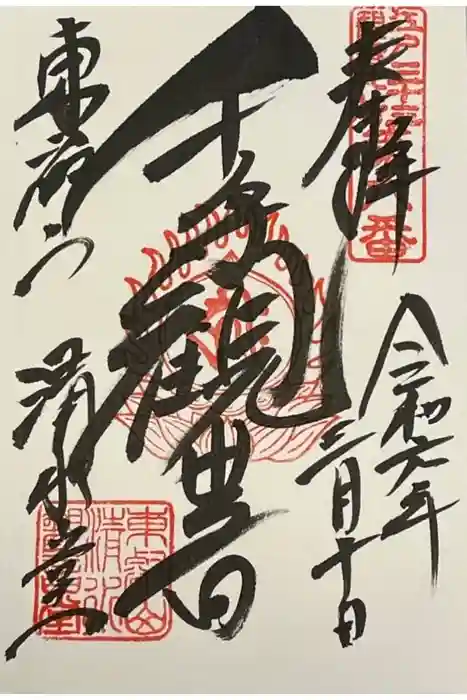 奉拝
令和六年
三月十日
千手観世音
東叡山
清水堂
東叡山
清水
観音堂